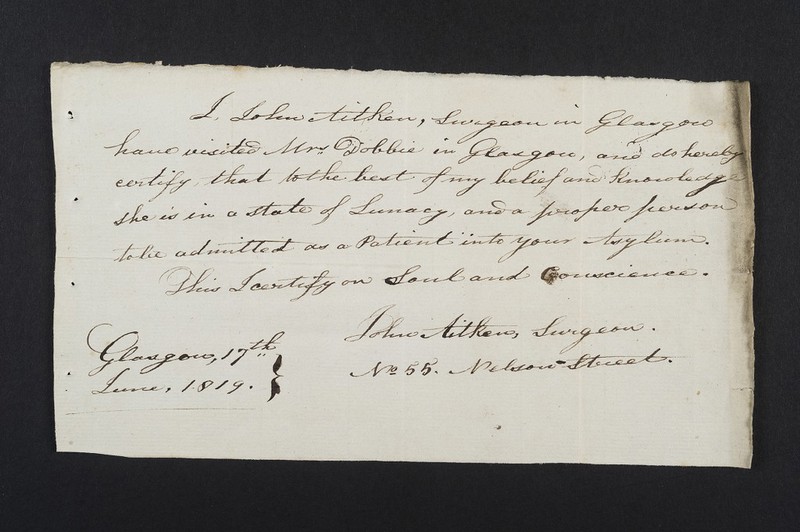 I, John Aitken, Surgeon in Glasgow
have visited Mrs Dobbie in Glasgow, and do hereby
certify, that to the best of my belief and Knowledge
she is in a state of Lunacy, and a proper person
to be admitted as a Patient into your Asylum.
This I certify on Soul and Conscience.
John Aitken, Surgeon.
No 55. Nelson Street.
Glasgow, 17th
June, 1819.